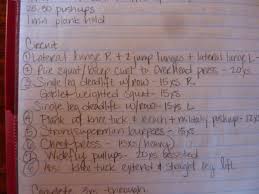 25-50 pushups
1 min plank hold
Circuit
① Lateral lunge R + 2 jump lunges + lateral lunge L -
② Plie squat/bicep curl to overhead press - 20xs
③ Single leg deadlift w/row - 15xs R.
Goblet weighted squat - 15xs
Single leg deadlift w/row - 15xs L
④ Plank w/ knee tuck & reach + military pushups - 12xs
⑤ Strong superman low press - 15xs
⑥ Chest press - 15xs (heavy)
⑦ Widefly pullups - 20xs assisted
⑧ knee tuck extend & straight leg lift
Complete 3xs through